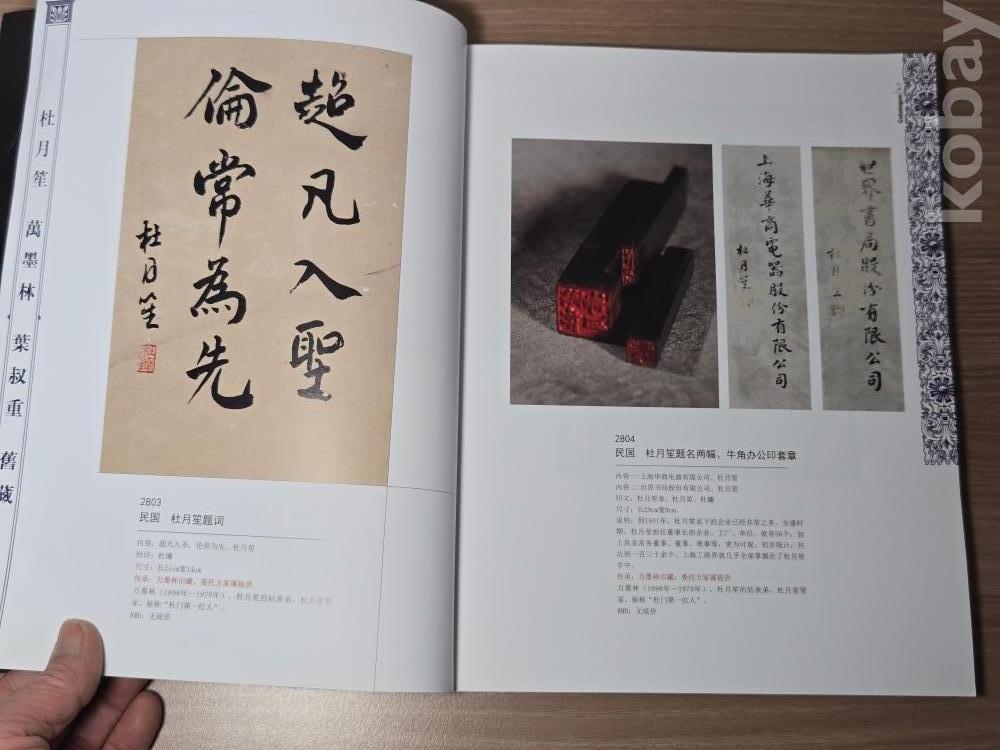 杜月笙 萬墨林 葉叔重 舊藏
超凡入聖
倫常為先
杜月笙
2803
民国 杜月笙题词
内容：超凡入圣，伦常为先。杜月笙
钤印：杜镛
尺寸：长21cm宽14cm
传承：万墨林旧藏，委托方家属提供
万墨林（1898年—1979年），杜月笙的姑表弟，杜月笙管
家，被称“杜门第一红人”。
RMB：无底价
上海華商電器股份有限公司
杜月笙
世界書局股份有限公司
2804
民国 杜月笙题名两幅、牛角办公印套章
内容一:上海华商电器有限公司，杜月笙
内容二:世界书局股份有限公司，杜月笙
印文：杜月笙章、杜月笙、杜镛
尺寸：长29cm宽9cm
说明：到1931年，杜月笙名下的企业已经非常之多，全盛时
期，杜月笙担任董事长的企业、工厂、单位，就有56个，如
上其余常务董事、董事、理事等，更为可观，初步统计，共
达到一百三十余个。上海工商界就几乎全部掌握在了杜月笙
手中。
传承：万墨林旧藏，委托方家属提供
万墨林（1898年—1979年），杜月笙的姑表弟，杜月笙管
家，被称“杜门第一红人”。
RMB：无底价
kobay